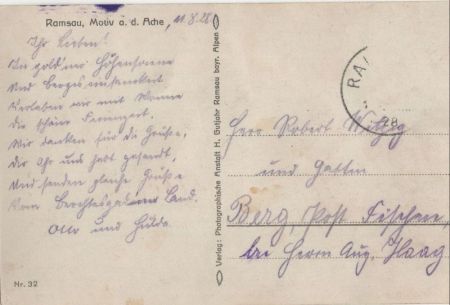 Ramsau, Motiv a. d. Ache, 11.8.28
Ihr Lieben!
In gold'ner Höhensonne
Und Berges
Verleben wir mit Wonne
Die schöne Ferienzeit.
Wir danken für die Grüße,
Die Ihr uns habt gesandt,
Und senden gleiche Grüße
Vom Berchtesgadener Land.
Otto und Hulda.
Nr. 32
Verlag: Photographische Anstalt H. Gutjahr Ramsau bayr. Alpen
RA
28
Herr Robert
und Gattin
Berg, Post
bei Herrn Aug. Haag